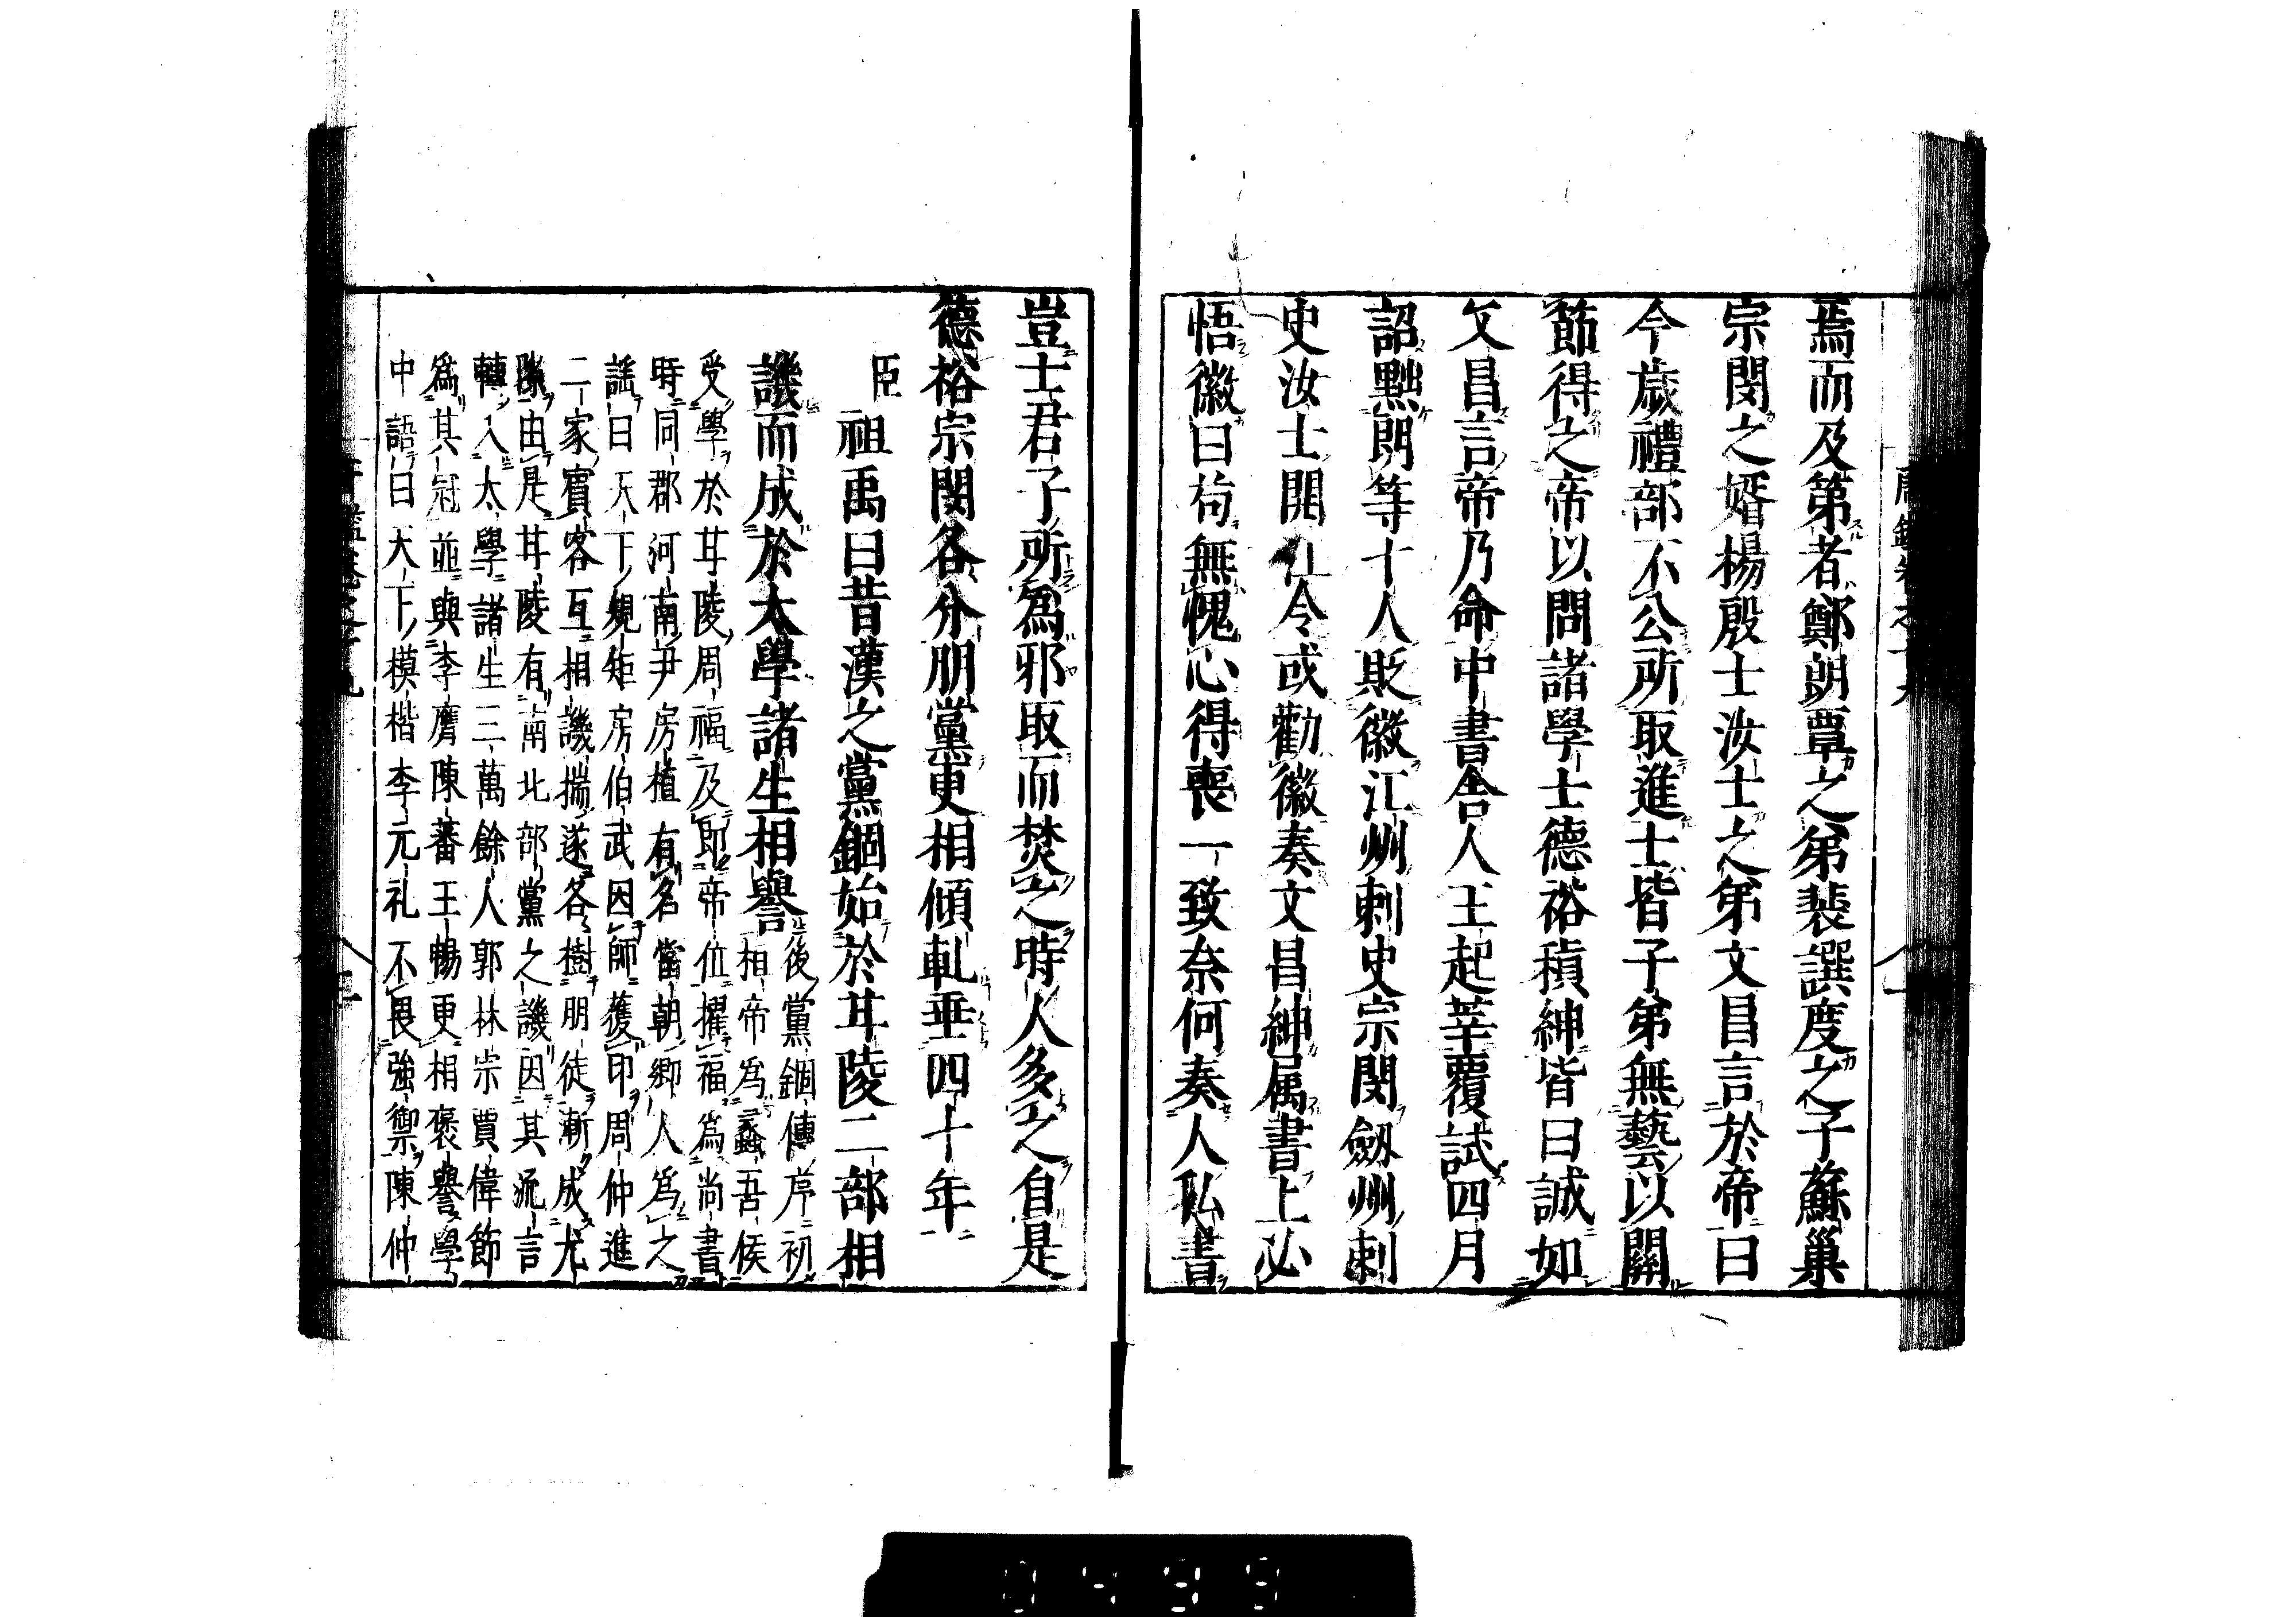 焉而及第者鄭朗覃之弟裴譔度之子蘇巢
宗閔之婿楊殷士汝士之弟文昌言於帝曰
今歲禮部不公所取進士皆子弟無藝以關
節得之帝以問諸學士德裕稹紳皆曰誠如
文昌言帝乃命中書舍人王起莘覆試四月
詔黜朗等十人貶徽江州刺史宗閔劔州刺
史汝士開江令或勸徽奏文昌紳属書上必
悟徽曰苟無愧心得喪一致奈何奏人私書
豈士君子所爲邪取而焚之時人多之自是
德裕宗閔各分朋黨更相傾軋垂四十年
臣祖禹曰昔漢之黨錮始於甘陵二部相
譏而成於太學諸生相譽
後黨錮傳序初
相帝爲蠡吾侯
受學於甘陵周福及即帝位擢福爲尚書
時同郡河南尹房植有名當朝鄉人爲之
謡曰天下規矩房伯武因師獲印周仲進
二家賓客互相譏揣遂各樹朋徒漸成尤
隙由是甘陵有南北部黨之譏因其流言
轉入太學諸生三萬餘人郭林宗賈偉節
爲其冠並與李膺陳蕃王暢更相褒譽學
中語曰天下模楷李元礼不畏強禦陳仲